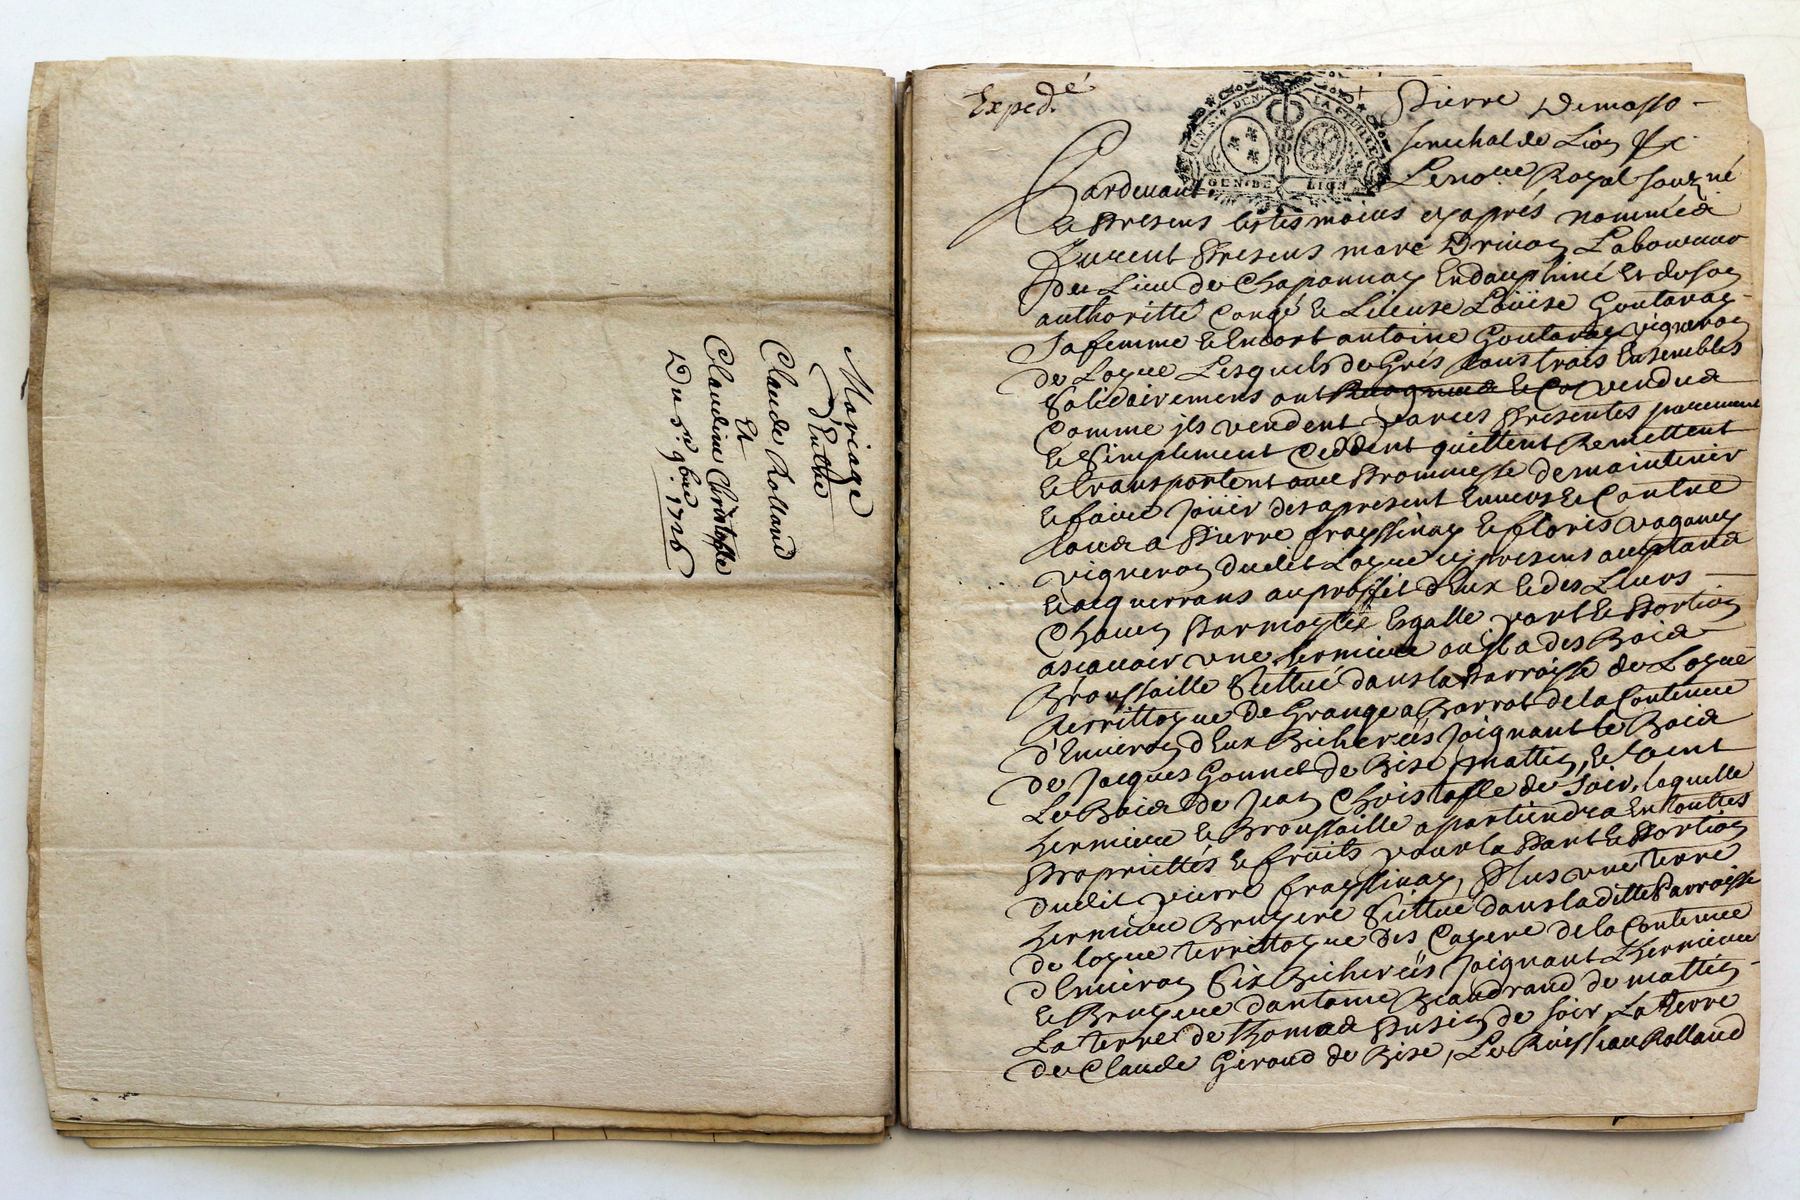 Mariage
d'Entre
Claude Rolland
Et
Claudine Christofle
Du 5.e 9bre 1726
Exped.é
GEN. DE LION
Pierre Demasso
senechal de Lion &c
Pardevant Le no.re Royal souz.né
Et presens les tesmoins cy aprés nommés
furent presens
du Lieu de Chaponnay En dauphiné Et de son
authoritté Congé & License Loüise Goutaray
sa femme & Encore antoine Goutaray vigneron
de Loyve Lesquels de Gres tous trois Ensembles
solidairement ont & vendus
Comme jls vendent par ces presentes purement
& simplement Ceddent quittent Remettent
& transportent avec prommesse de maintenir
& faire joüir des apresent Envers & Contre
tous a Pierre frayssinay & floris
vigneron dudit Loyve cy presens acceptans
& acquerrans au proffit d'Eux & des Leurs
Chacun par moytié Egalle part & portion
ascavoir une hermiere ou jl a des Bois
Broussaille Sittué dans la parroisse de Loyve
territtoyre De Grange a Barrot de la Contenue
d'Environ d'Eux Bicherées joignant le Bois
de jacques Gonnet de Bise & mattin, &
Le Bois de jean Christofle de soir, laquelle
hermiere & Broussaille apartiendra En touttes
proprietés & fruits pour la part & portion
dudit pierre frayssinay, plus une terre
hermiere Bruyere Sittué dans la ditte parroisse
de loyve territtoyre des de la Contenue
d'Environ Six Bicherées joignant L'hermiere
& Bruyere d'antoine Beaudrand de mattin
La terre de thomas de soir, La terre
de Claude Giroud de Bise, Le Ruisseau Rolland